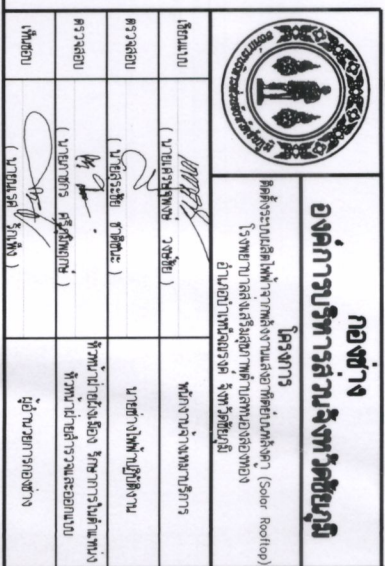 กองช่าง
องค์การบริหารส่วนจังหวัดชัยภูมิ
โครงการ
ติดตั้งระบบผลิตไฟฟ้าจากพลังงานแสงอาทิตย์บนหลังคา (Solar Rooftop)
โรงพยาบาลส่งเสริมสุขภาพตำบลหนองสองห้อง
อำเภอบำเหน็จณรงค์ จังหวัดชัยภูมิ
เขียนแบบ
( นายเศรษฐพงษ์ วงษ์ชัย )
พนักงานจ้างเหมาบริการ
ตรวจสอบ
( นายสุระชัย ชาติชนะ )
นายช่างไฟฟ้าปฏิบัติงาน
ตรวจสอบ
( นายภาชกร ศรีภูมิพฤกษ์ )
หัวหน้าฝ่ายผังเมือง รักษาการในตำแหน่ง
หัวหน้าฝ่ายสำรวจและออกแบบ
เห็นชอบ
( นายนเรศ รักเพิ่ง )
ผู้อำนวยการกองช่าง